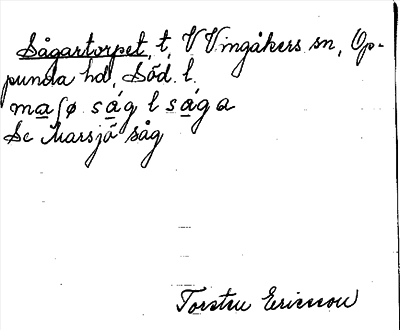 Sågartorpet, t, V Vingåkers sn, Op-
punda hd, Söd. l.
maſø såg l såga
Se Marsjö såg
Torsten Ericsson